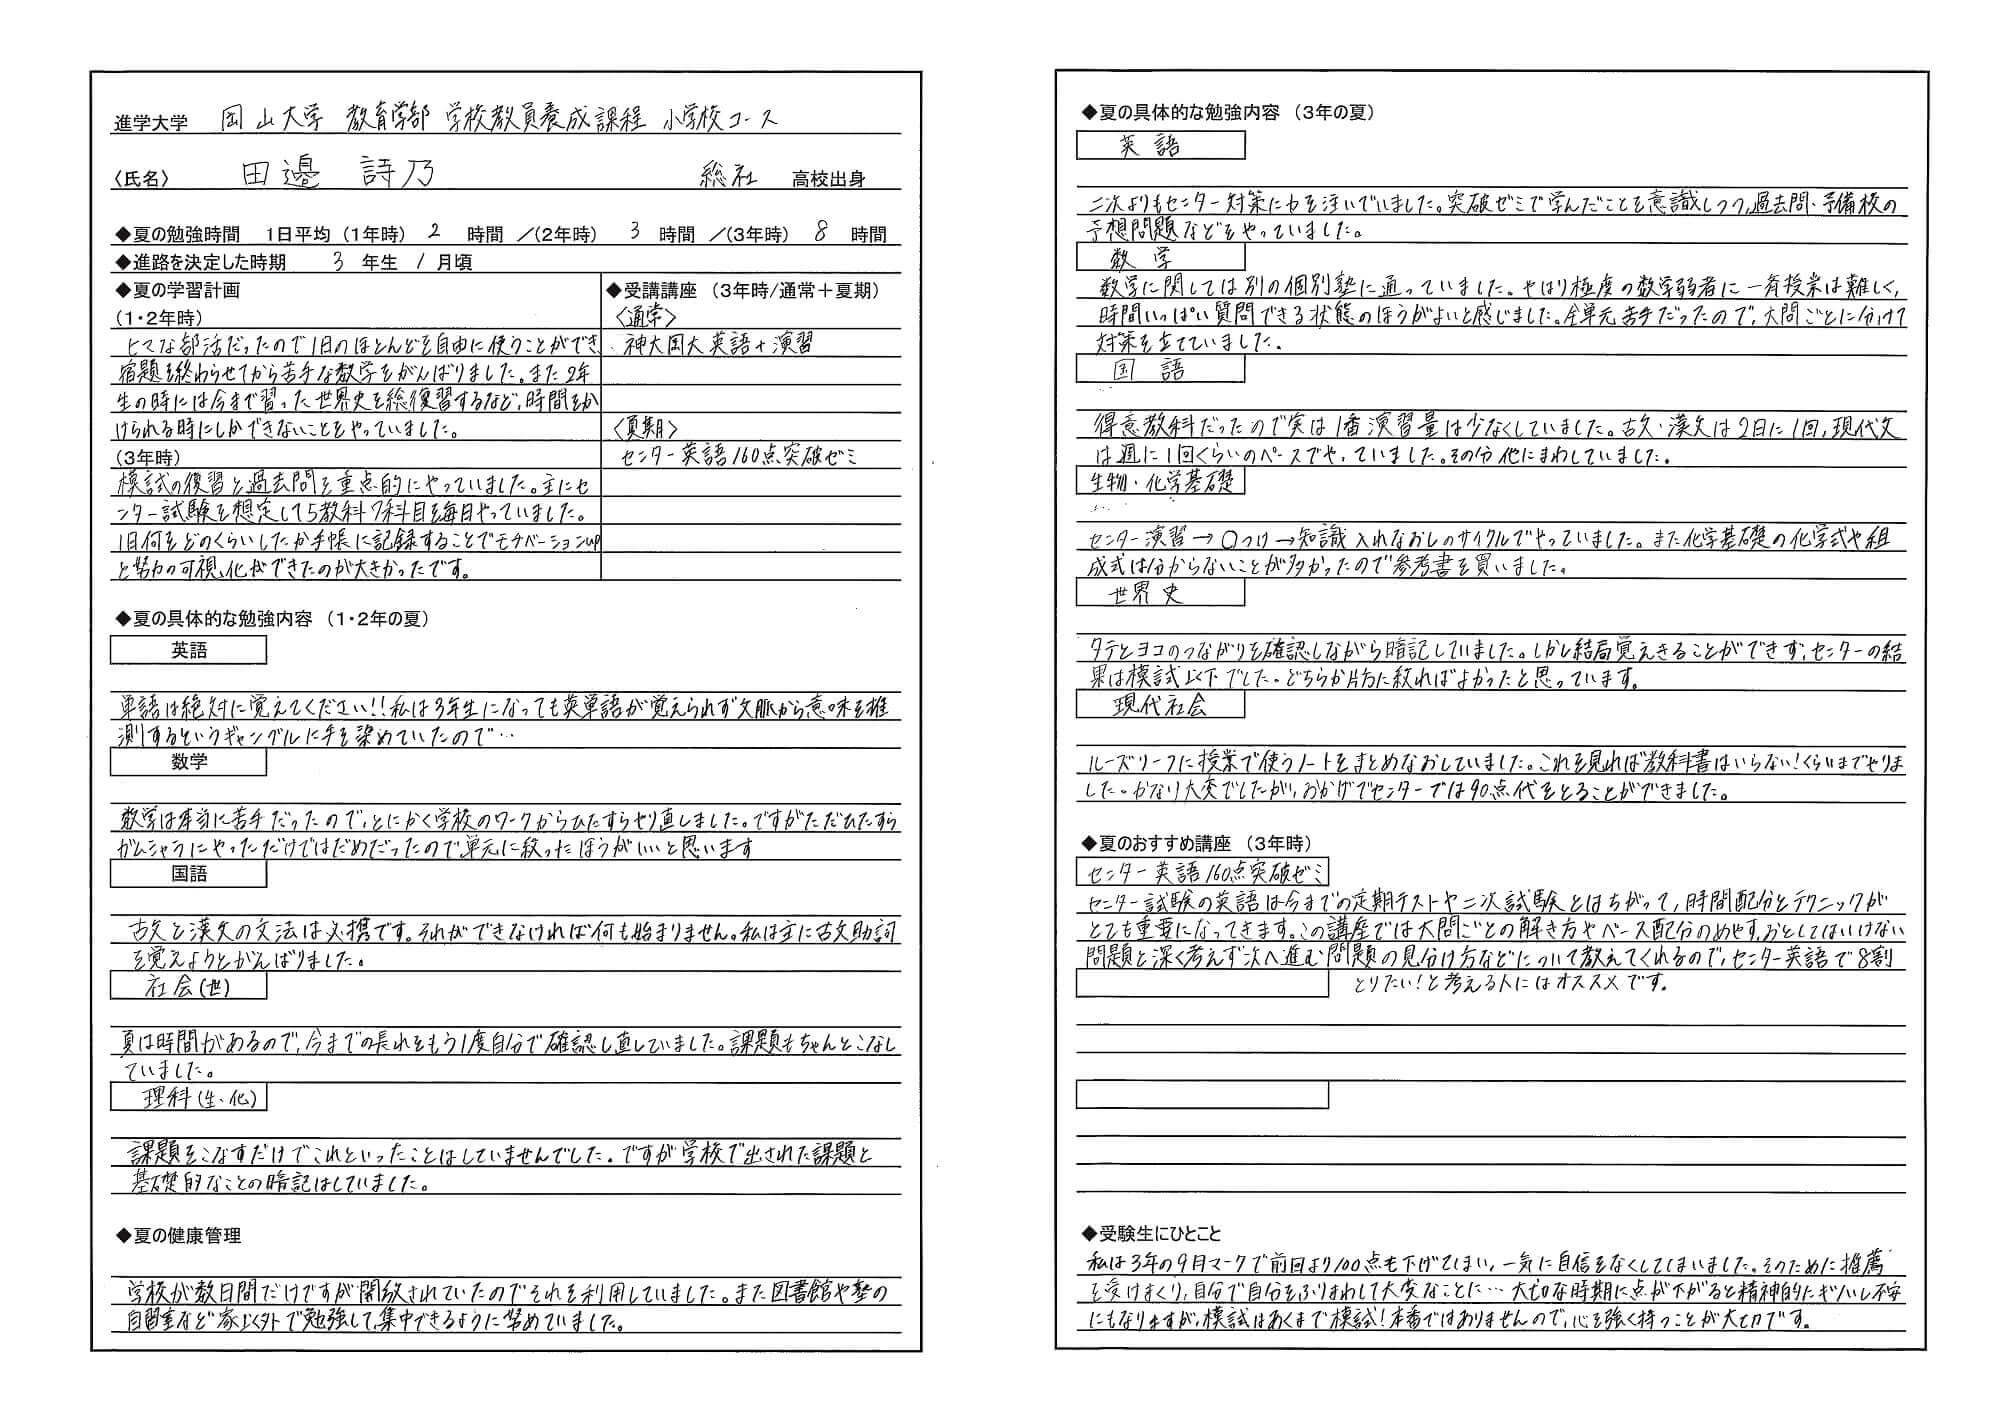 進学大学 岡山大学 教育学部 学校教員養成課程 小学校コース
〈氏名〉 田邉 詩乃 総社 高校出身
◆夏の勉強時間 1日平均（1年時） 2 時間 ／（2年時） 3 時間 ／（3年時） 8 時間
◆進路を決定した時期 3 年生 1 月頃
◆夏の学習計画
（1・2年時）
ヒマな部活だったので1日のほとんどを自由に使うことができ、
宿題を終わらせてから苦手な数学をがんばりました。また2年
生の時には今まで習った世界史を総復習するなど、時間をか
けられる時にしかできないことをやっていました。
（3年時）
模試の復習と過去問を重点的にやっていました。主にセ
ンター試験を想定して5教科7科目を毎日やっていました。
1日何をどのくらいしたか手帳に記録することでモチベーションup
と努力の可視化ができたのが大きかったです。
◆受講講座 （3年時/通常＋夏期）
〈通常〉
・神大岡大英語＋演習
〈夏期〉
センター英語160点突破ゼミ
◆夏の具体的な勉強内容 （1・2年の夏）
英語
単語は絶対に覚えてください!!私は3年生になっても英単語が覚えられず文脈から意味を推
測するというギャンブルに手を染めていたので…
数学
数学は本当に苦手だったので、とにかく学校のワークからひたすらやり直しました。ですがただひたすら
ガムシャラにやっただけではだめだったので単元に絞ったほうがいいと思います
国語
古文と漢文の文法は必携です。それができなければ何も始まりません。私は主に古文助詞
を覚えようとがんばりました。
社会(世)
夏は時間があるので、今までの流れをもう1度自分で確認し直していました。課題もちゃんとこなし
ていました。
理科(生・化)
課題をこなすだけでこれといったことはしていませんでした。ですが学校で出された課題と
基礎的なことの暗記はしていました。
◆夏の健康管理
学校が数日間だけですが開放されていたのでそれを利用していました。また図書館や塾の
自習室など家以外で勉強して、集中できるように努めていました。
◆夏の具体的な勉強内容 （3年の夏）
英語
二次よりもセンター対策に力を注いでいました。突破ゼミで学んだことを意識しつつ、過去問・予備校の
予想問題などをやっていました。
数学
数学に関しては別の個別塾に通っていました。やはり極度の数学弱者に一斉授業は難しく、
時間いっぱい質問できる状態のほうがよいと感じました。全単元苦手だったので、大問ごとに分けて
対策を立てていました。
国語
得意教科だったので実は1番演習量は少なくしていました。古文・漢文は2日に1回、現代文
は週に1回くらいのペースでやっていました。その分他にまわしていました。
生物・化学基礎
センター演習→○つけ→知識入れなおしのサイクルでやっていました。また化学基礎の化学式や組
成式は分からないことが多かったので参考書を買いました。
世界史
タテとヨコのつながりを確認しながら暗記していました。しかし結局覚えきることができず、センターの結
果は模試以下でした。どちらか片方に絞ればよかったと思っています。
現代社会
ルーズリーフに授業で使うノートをまとめなおしていました。これを見れば教科書はいらない！くらいまでやりま
した。かなり大変でしたが、おかげでセンターでは90点代をとることができました。
◆夏のおすすめ講座 （3年時）
センター英語160点突破ゼミ
センター試験の英語は今までの定期テストや二次試験とはちがって、時間配分とテクニックが
とても重要になってきます。この講座では大問ごとの解き方やペース配分のめやす、おとしてはいけない
問題と深く考えず次へ進む問題の見分け方などについて教えてくれるので、センター英語で8割
とりたい！と考える人にはオススメです。
◆受験生にひとこと
私は3年の9月マークで前回より100点も下げてしまい、一気に自信をなくしてしまいました。そのために推薦
を受けまくり、自分で自分をふりまわして大変なことに…大切な時期に点が下がると精神的にキツいし不安
にもなりますが、模試はあくまで模試！本番ではありませんので、心を強く持つことが大切です。